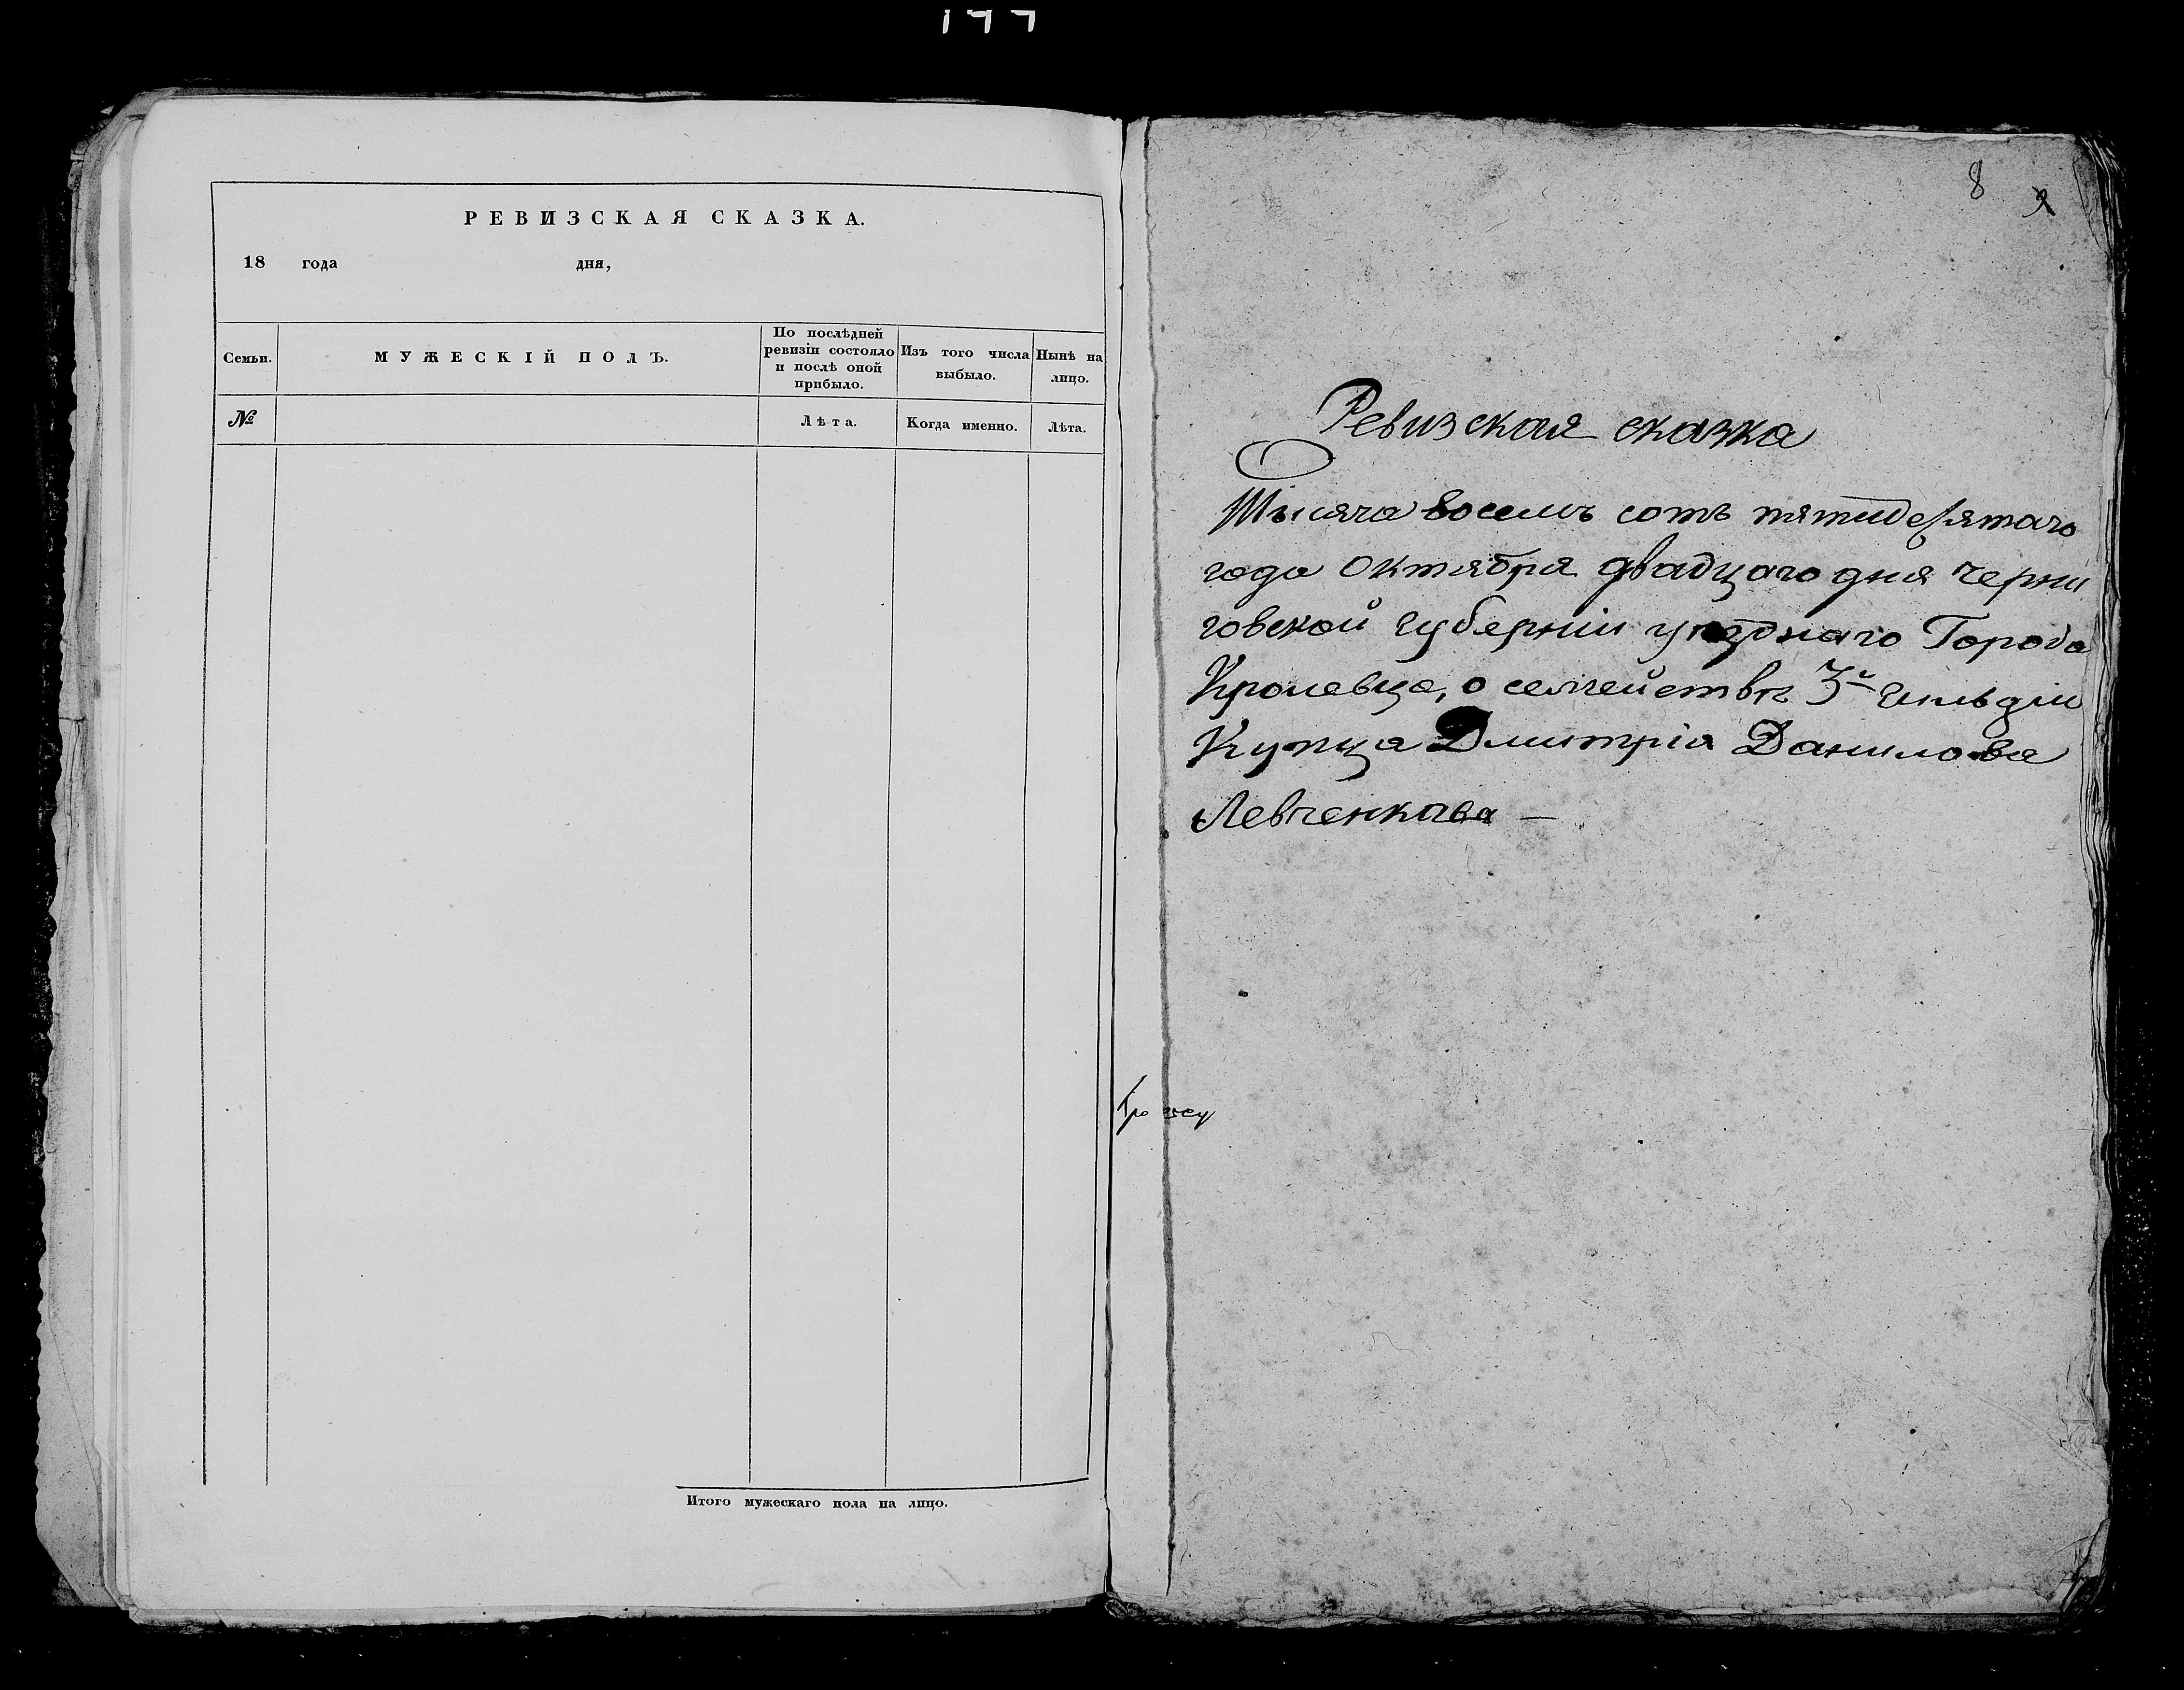 РЕВИЗСКАЯ СКАЗКА.
18 года дня,
Семьи.
МУЖЕСКІЙ ПОЛЪ.
По послѣдней
ревизіи состояло
и послѣ оной
прибыло.
Изъ того числа
выбыло.
Нынѣ на
лицо.
№
Лѣта.
Когда именно.
Лѣта.
Итого мужескаго пола на лицо.
8
Ревизская сказка
Тысяча восемъ сотъ пятидесятаго
года Октября двадцаго дня Черни
говской губерніи уѣзднаго Города
Кролевца, о семействѣ 3й Гильдіи
Купца Дмитрія Данилова
Левченкова —